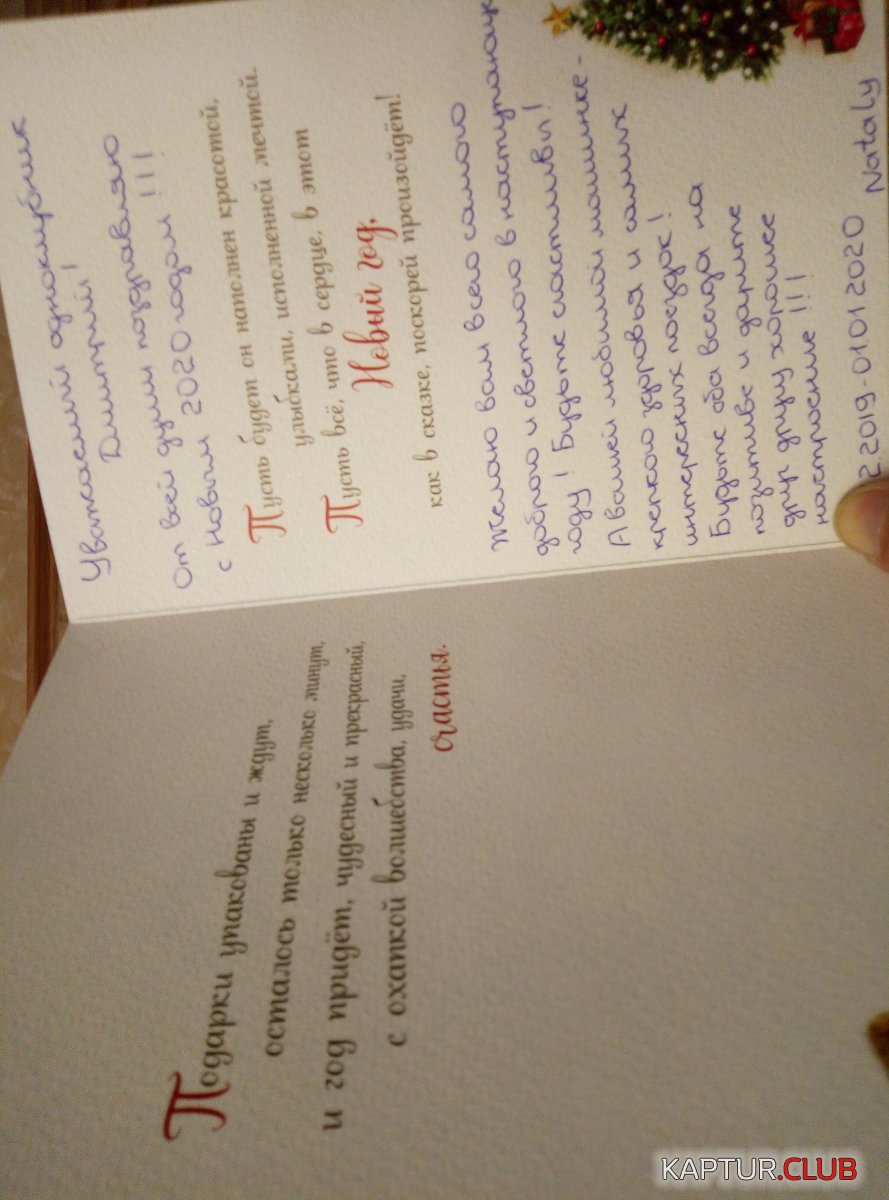 Подарки упакованы и ждут,
осталось только несколько минут,
и год придёт, чудесный и прекрасный,
с охапкой волшебства, удачи,
счастья.
Уважаемый одноклубник
Дмитрий!
От всей души поздравляю
с Новым 2020 годом !!!
Пусть будет он наполнен красотой,
улыбками, исполненной мечтой.
Пусть всё, что в сердце, в этот
Новый год,
как в сказке, поскорей произойдёт!
Желаю вам всего самого
доброго и светлого в наступающ
году! Будьте счастливы!
А вашей любимой машинке -
крепкого здоровья и самых
интересных поездок!
Будьте оба всегда на
позитиве и дарите
друг другу хорошее
настроение !!!
2.2019-01.01.2020 Nataly
KAPTUR.CLUB